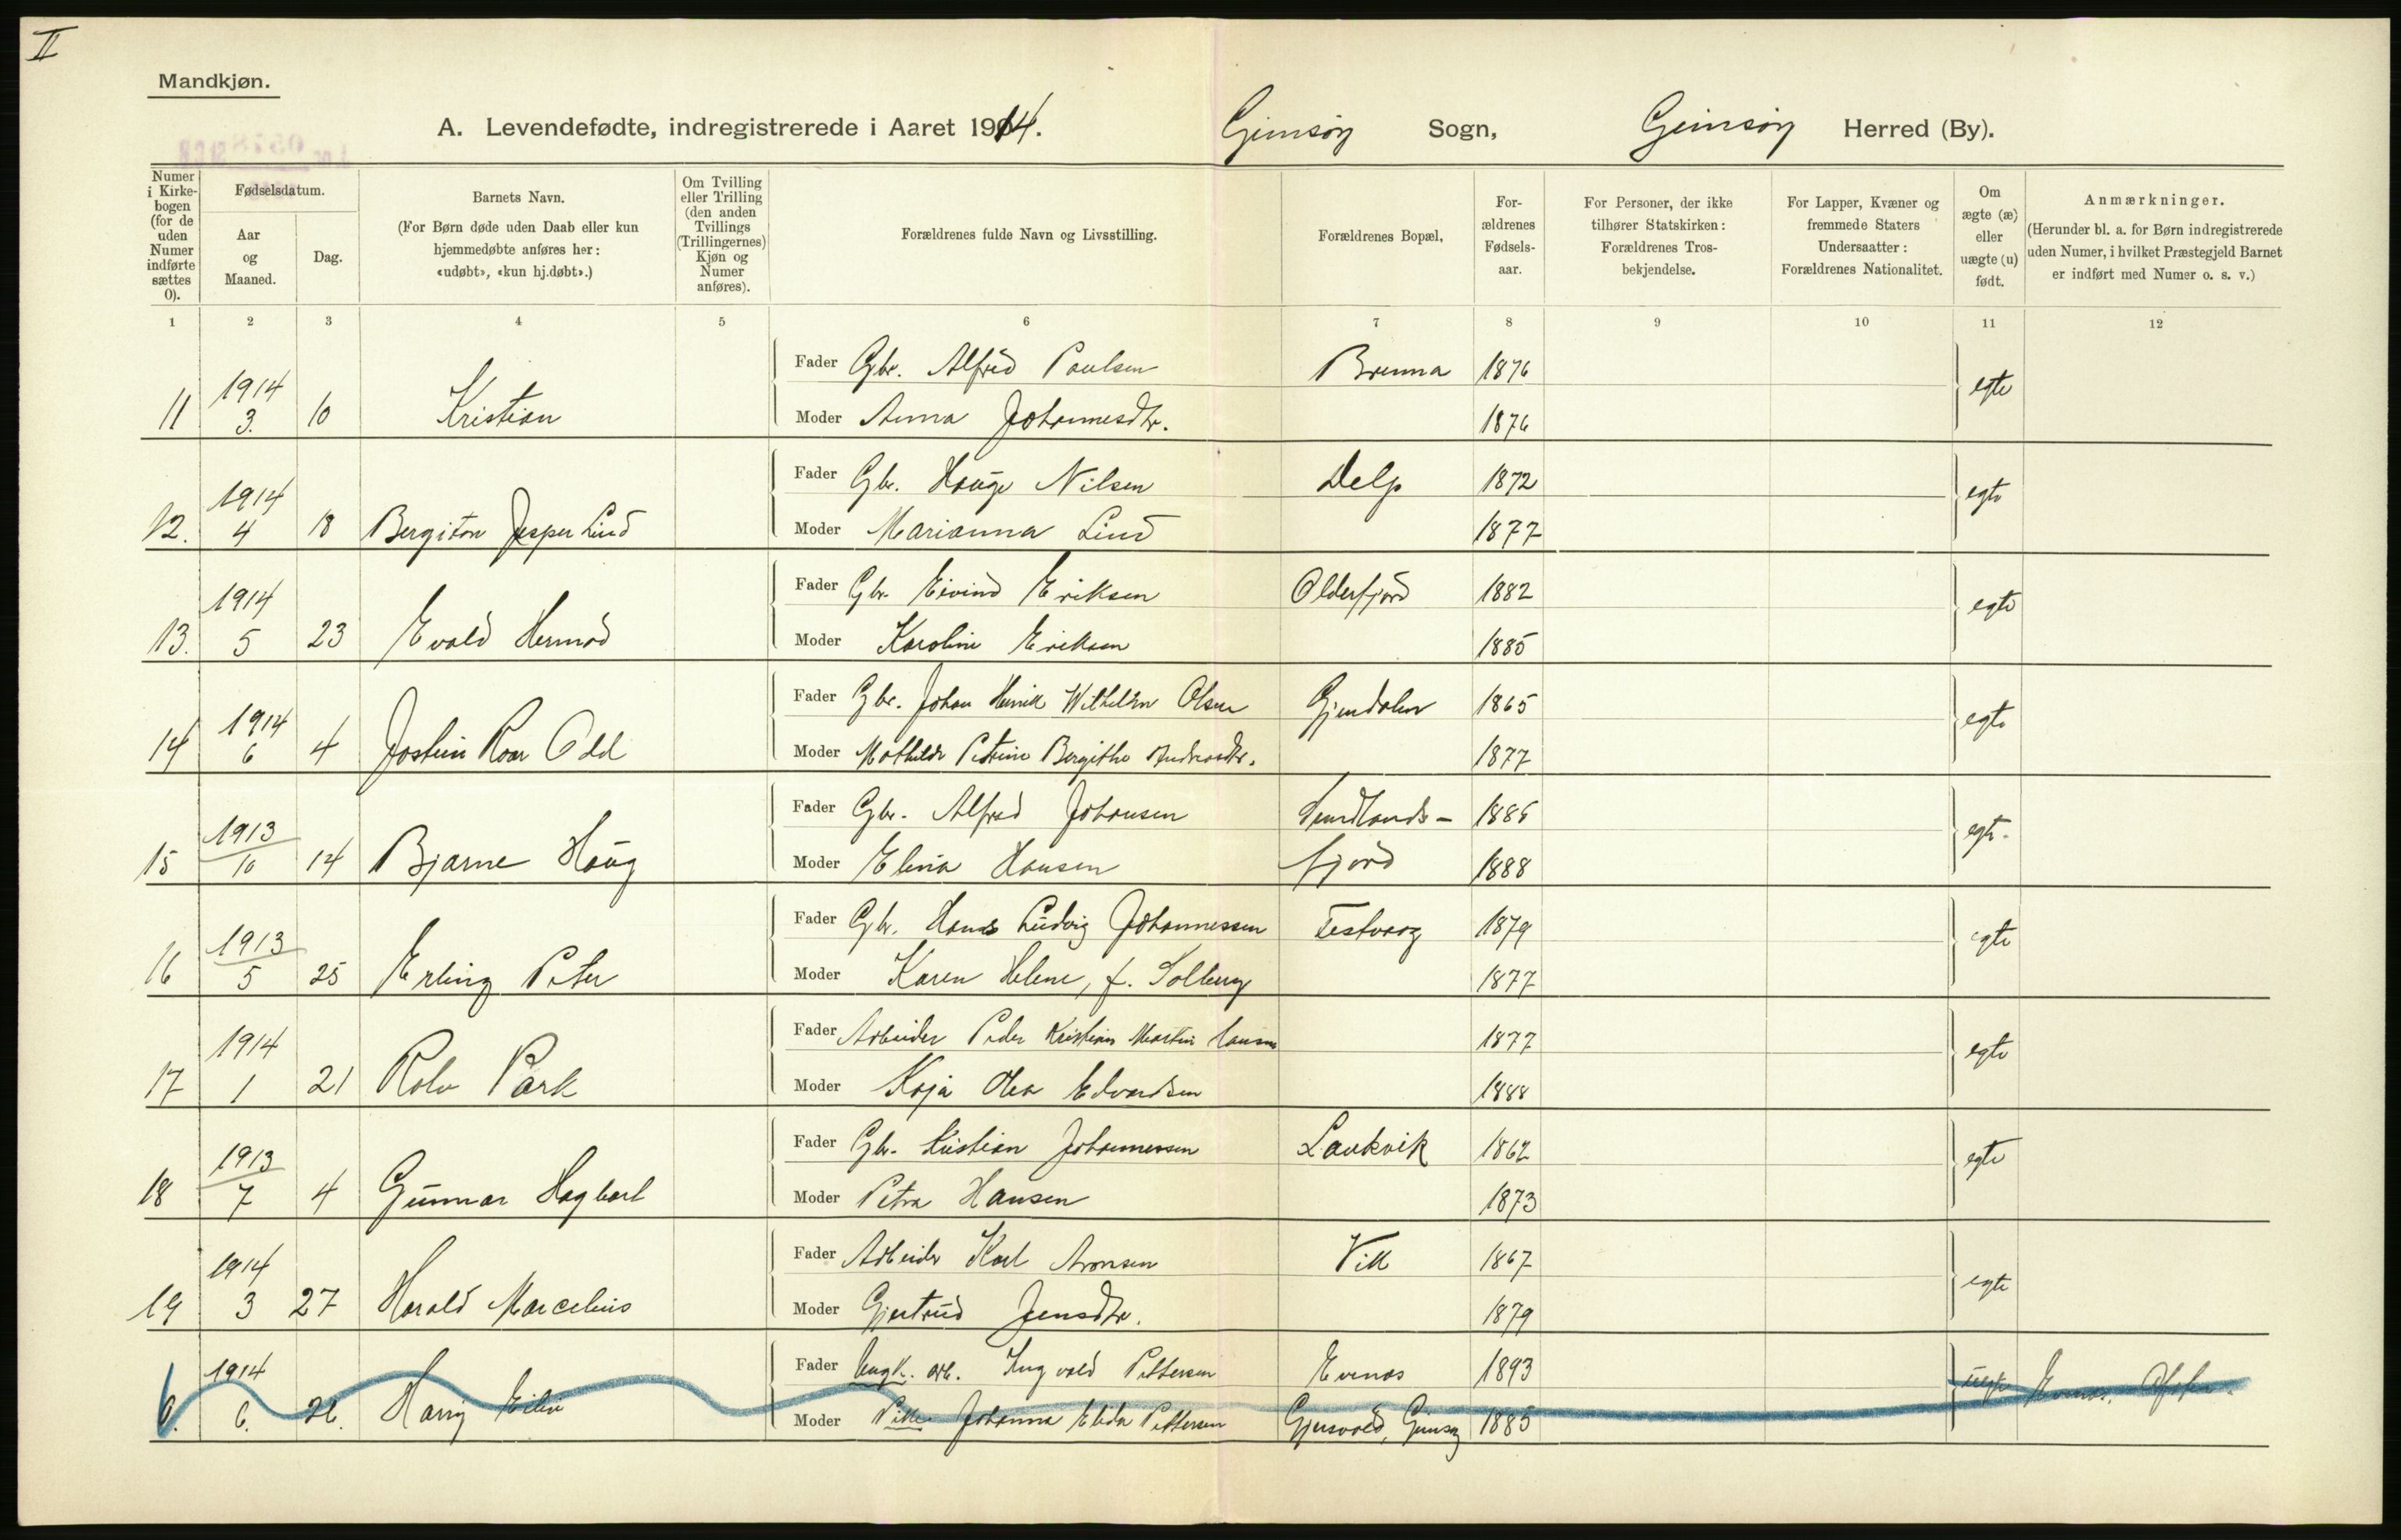 II
Mandkjøn.
A. Levendefødte, indregistrerede i Aaret 1914. Gimsøy Sogn, Gimsøy Herred (By).
Numer i Kirkebogen (for de uden Numer indførte sættes 0).
Fødselsdatum.
Aar og Maaned.
Dag.
Barnets Navn.
(For Børn døde uden Daab eller kun hjemmedøbte anføres her: «udøbt», «kun hj.døbt».)
Om Tvilling eller Trilling (den anden Tvillings (Trillingernes) Kjøn og Numer anføres).
Forældrenes fulde Navn og Livsstilling.
Forældrenes Bopæl,
Forældrenes Fødselsaar.
For Personer, der ikke tilhører Statskirken: Forældrenes Trosbekjendelse.
For Lapper, Kvæner og fremmede Staters Undersaatter: Forældrenes Nationalitet.
Om ægte (æ) eller uægte (u) født.
Anmærkninger.
(Herunder bl. a. for Børn indregistrerede uden Numer, i hvilket Præstegjeld Barnet er indført med Numer o. s. v.)
1 2 3 4 5 6 7 8 9 10 11 12
Fader Gbr. Alfred Paulsen Brenna 1876
11 1914 3. 10 Kristian egte
Moder Anna Johannesdtr. 1876
Fader Gbr. Hauge Nilsen Delp 1872
12. 1914 4 18 Bergiton Jesper Lind egte
Moder Marianna Lind 1877
Fader Gbr. Eivind Eriksen Olderfjord 1882
13. 1914 5 23 Evald Hermod egte
Moder Karoline Eriksen 1885
Fader Gbr. Johan Henrik Wilhelm Olsen 1865
14 1914 6 4 Jostein Roar Odd egte
Moder Mathilde Petrine Bergithe Andreasdtr. 1877
Fader Gbr. Alfred Johansen Sundlands- 1886
15 1913 10 14 Bjarne Haug egte.
Moder Elina Hansen fjord 1888
Fader Gbr. Hans Ludvig Johannessen Festvaag 1879
16 1913 5 25 Erling Peter egte
Moder Karen Helene, f. Solberg 1877
Fader Arbeider Peder Kristian Martin Hansen 1877
17 1914 1 21 Rolv Park egte
Moder Kaja Olea Edvardsen 1888
Fader Gbr. Kristian Johannessen Laukvik 1862
18 1913 7 4 Gunnar Hagbart egte
Moder Petra Hansen 1873
Fader Arbeider Karl Aronsen Vik 1867
19 1914 3 27 Harald Marcelius egte
Moder Gjertrud Jensdtr. 1879
Fader Ungk. arb. Ingvald Pettersen Evenes 1893
0. 1914 6. 26. Harry Eiliv uegte Evenes,
Moder Pike Johanna Elida Pettersen Gimsøy 1885